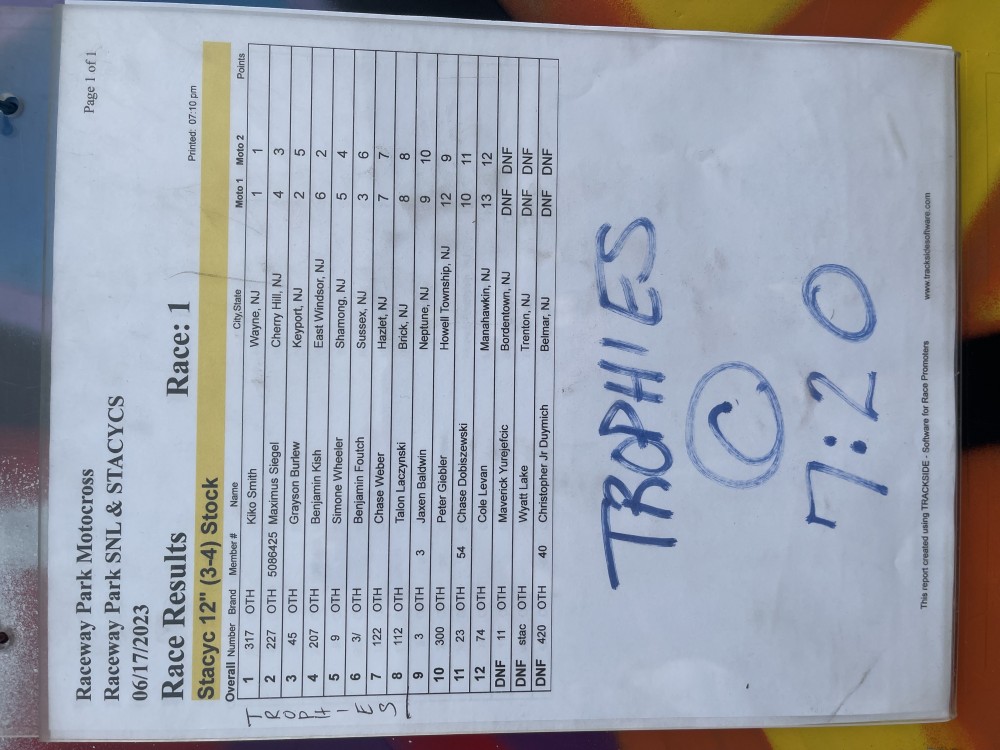 Raceway Park Motocross Page 1 of 1
Raceway Park SNL & STACYCS
06/17/2023
Race Results Race: 1 Printed: 07:10 pm
Stacyc 12" (3-4) Stock
Overall Number Brand Member # Name City,State Moto 1 Moto 2 Points
1 317 OTH Kiko Smith Wayne, NJ 1 1
2 227 OTH 5086425 Maximus Siegel Cherry Hill, NJ 4 3
3 45 OTH Grayson Burlew Keyport, NJ 2 5
4 207 OTH Benjamin Kish East Windsor, NJ 6 2
5 9 OTH Simone Wheeler Shamong, NJ 5 4
6 3/ OTH Benjamin Foutch Sussex, NJ 3 6
7 122 OTH Chase Weber Hazlet, NJ 7 7
8 112 OTH Talon Laczynski Brick, NJ 8 8
9 3 OTH 3 Jaxen Baldwin Neptune, NJ 9 10
10 300 OTH Peter Giebler Howell Township, NJ 12 9
11 23 OTH 54 Chase Dobiszewski 10 11
12 74 OTH Cole Levan Manahawkin, NJ 13 12
DNF 11 OTH Maverick Yurejefcic Bordentown, NJ DNF DNF
DNF stac OTH Wyatt Lake Trenton, NJ DNF DNF
DNF 420 OTH 40 Christopher Jr Duymich Belmar, NJ DNF DNF
TROPHIES
TROPHIES
@
7:20
This report created using TRACKSIDE - Software for Race Promoters www.tracksidesoftware.com